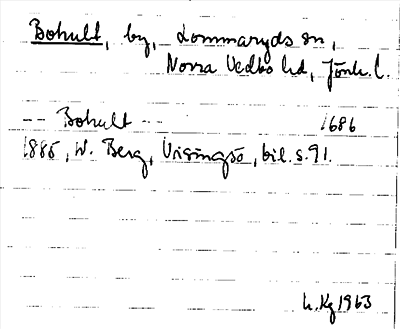 Bohult, by, Lommaryds sn,
Norra Vedbo hd, Jönk. l.
-- Bohult -- 1686
1885, W. Berg, Visingsö, bil. s. 91.
L. Kg 1963